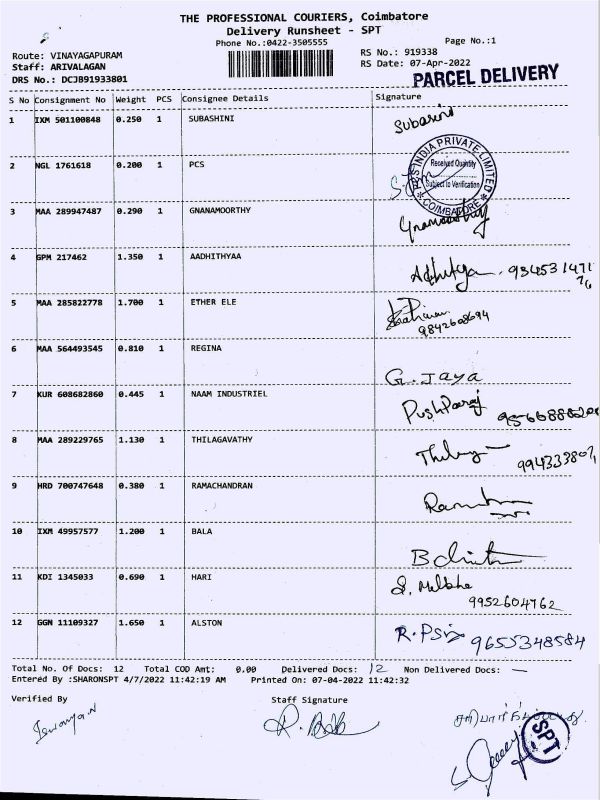 THE PROFESSIONAL COURIERS, Coimbatore
Delivery Runsheet - SPT
Phone No.:0422-3505555
Page No.:1
Route: VINAYAGAPURAM
RS No.: 919338
Staff: ARIVALAGAN
RS Date: 07-Apr-2022
DRS No.: DCJB91933801
PARCEL DELIVERY
S No Consignment No Weight PCS Consignee Details Signature
1 IXM 501100848 0.250 1 SUBASHINI Subasini
INDIA PRIVATE LIMITED
Received Quantity
Subject to Verification
COIMBATORE
2 NGL 1761618 0.200 1 PCS
3 MAA 289947487 0.290 1 GNANAMOORTHY
4 GPM 217462 1.350 1 AADHITHYAA Adhitya
5 MAA 285822778 1.700 1 ETHER ELE
9842608694
6 MAA 564493545 0.810 1 REGINA G. Jaya
7 KUR 608682860 0.445 1 NAAM INDUSTRIEL PushParaj
8 MAA 289229765 1.130 1 THILAGAVATHY
9 HRD 700747648 0.380 1 RAMACHANDRAN
10 IXM 49957577 1.200 1 BALA
11 KDI 1345033 0.690 1 HARI
9952604762
12 GGN 11109327 1.650 1 ALSTON 9655348584
Total No. Of Docs: 12 Total COD Amt: 0.00 Delivered Docs: 12 Non Delivered Docs: —
Entered By :SHARONSPT 4/7/2022 11:42:19 AM Printed On: 07-04-2022 11:42:32
Verified By Staff Signature
SPT